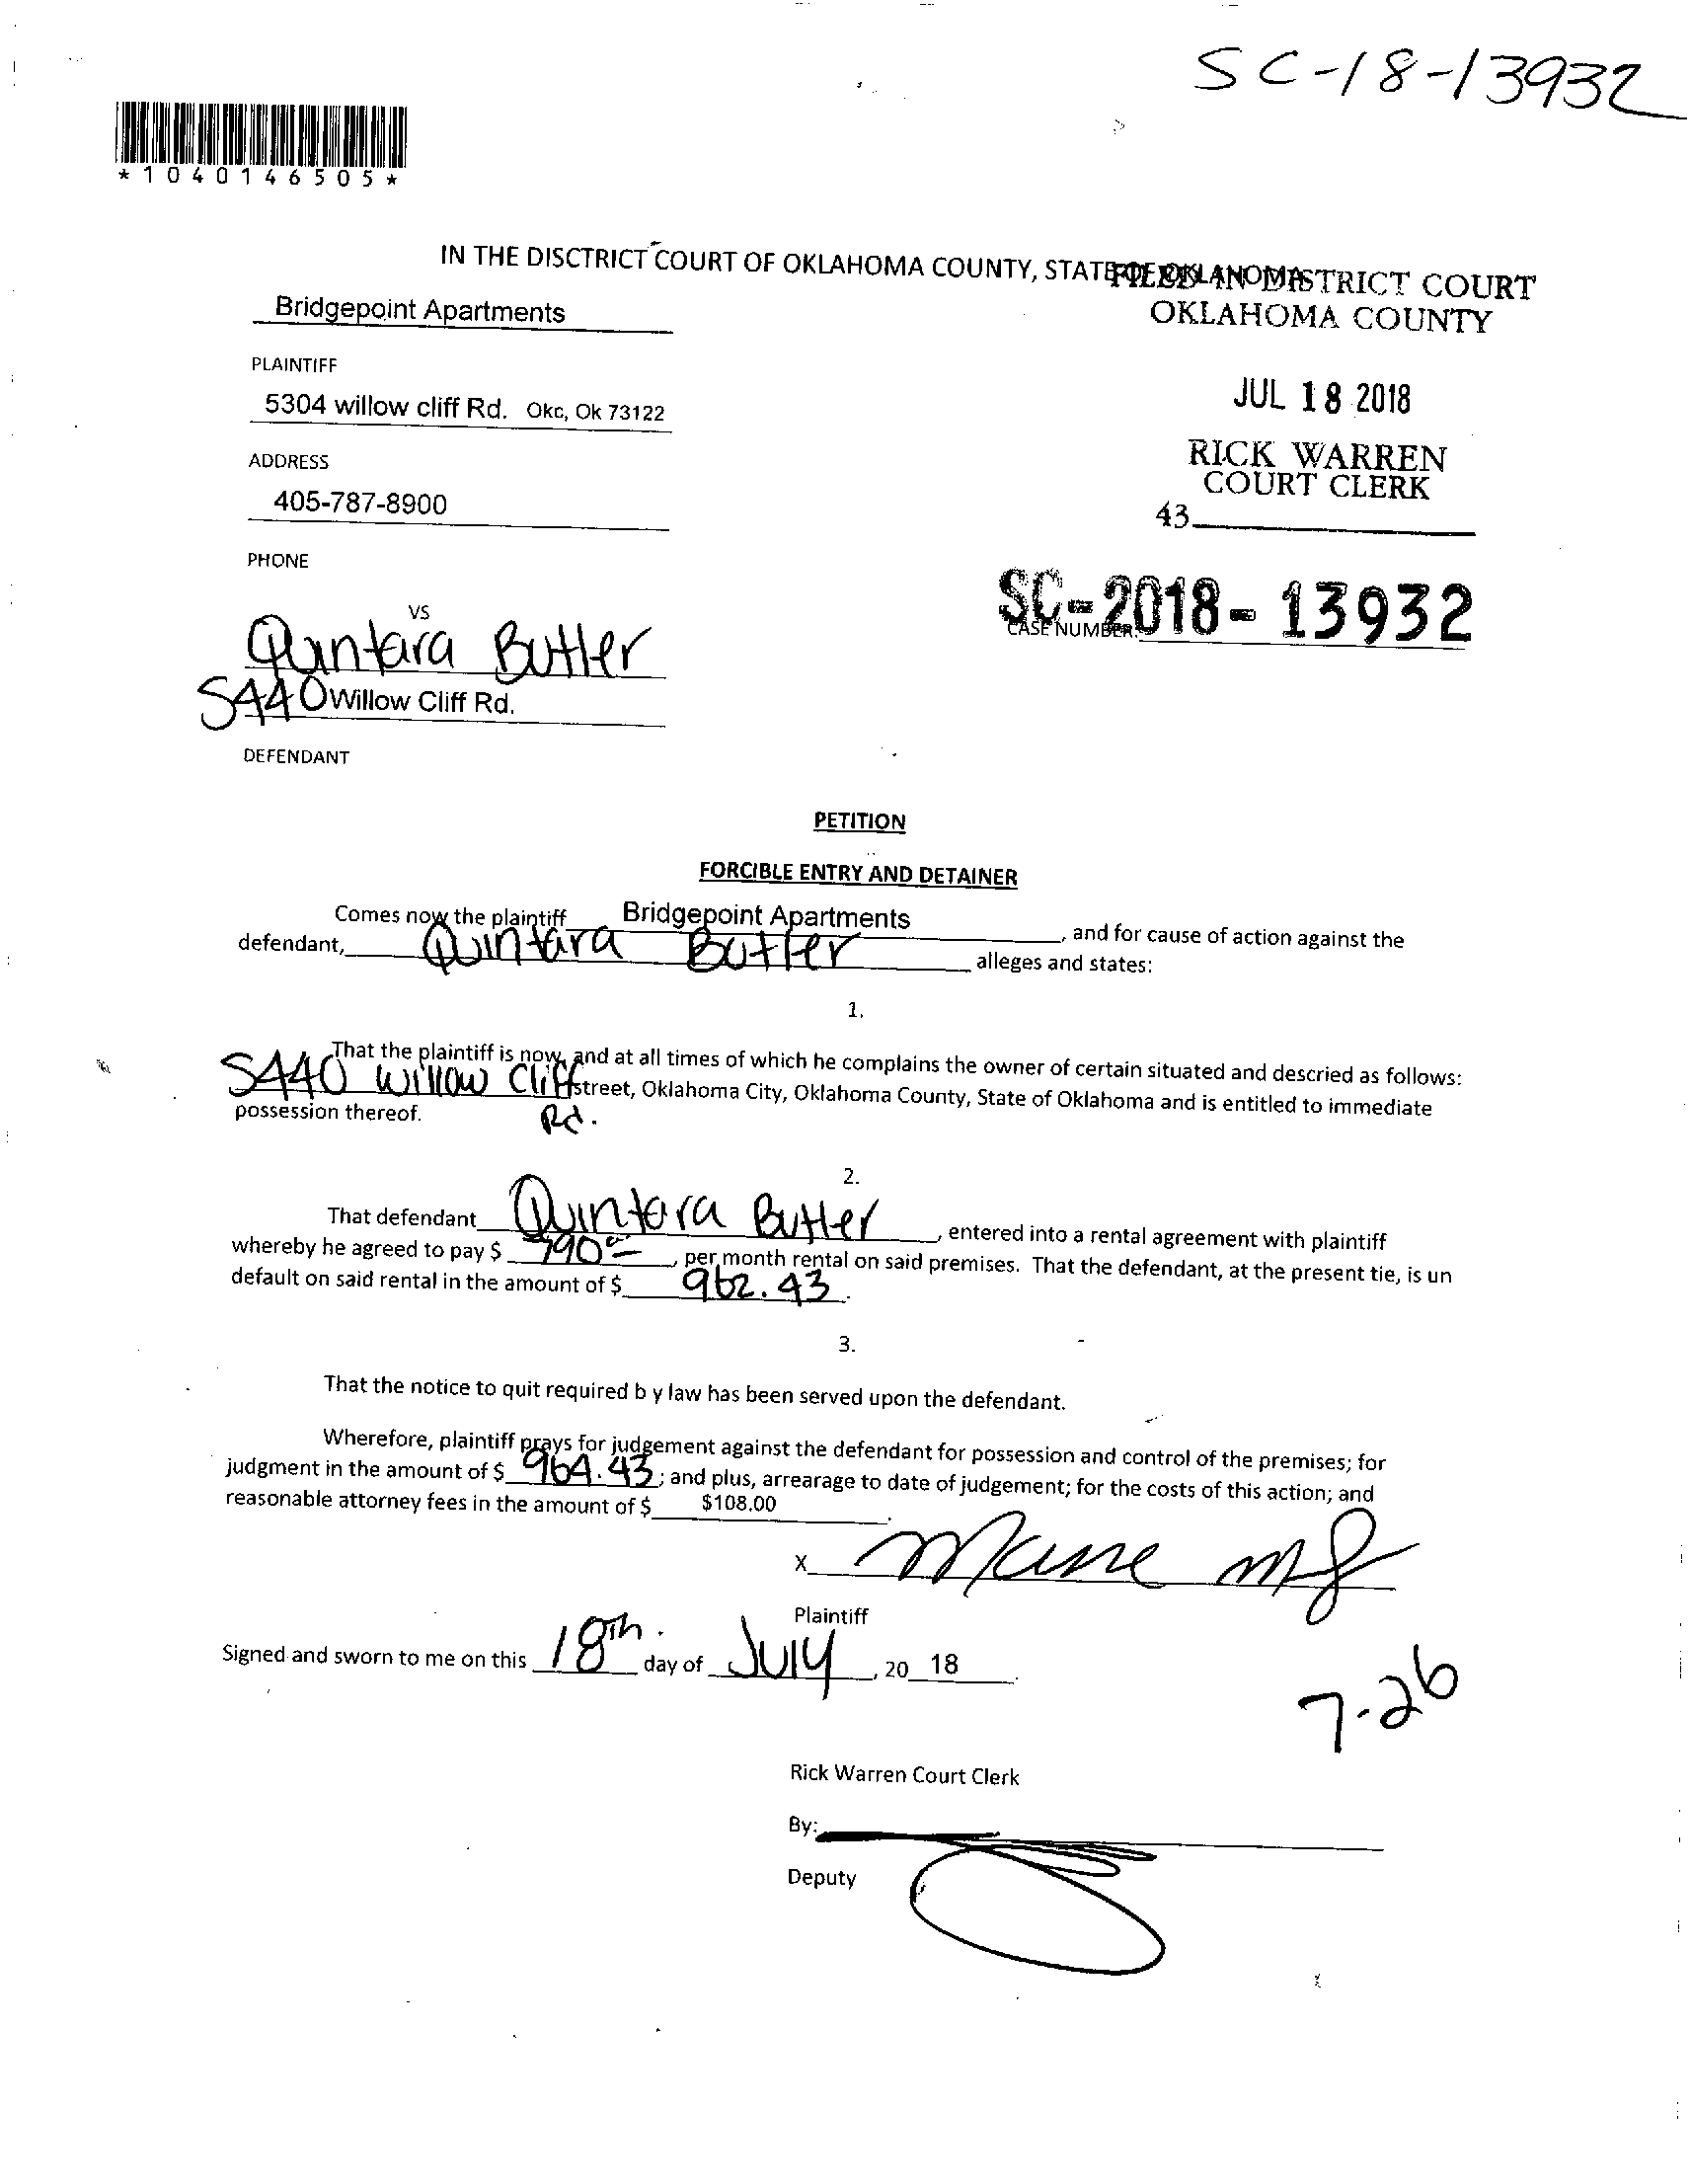 SC-18-13932
*1040146505*
IN THE DISCTRICT COURT OF OKLAHOMA COUNTY, STATE OF OKLAHOMA
FILED IN DISTRICT COURT
OKLAHOMA COUNTY
Bridgepoint Apartments
PLAINTIFF
JUL 18 2018
5304 willow cliff Rd. Okc, Ok 73122
RICK WARREN
COURT CLERK
ADDRESS
405-787-8900
43
PHONE
VS
SC-2018-13932
CASE NUMBER:
Quintara Butler
5440 Willow Cliff Rd.
DEFENDANT
PETITION
FORCIBLE ENTRY AND DETAINER
Comes now the plaintiff Bridgepoint Apartments, and for cause of action against the
defendant, Quintara Butler alleges and states:
1.
That the plaintiff is now, and at all times of which he complains the owner of certain situated and descried as follows:
5440 Willow Cliff Rd. street, Oklahoma City, Oklahoma County, State of Oklahoma and is entitled to immediate
possession thereof.
2.
That defendant Quintara Butler, entered into a rental agreement with plaintiff
whereby he agreed to pay $ 790.00, per month rental on said premises. That the defendant, at the present tie, is un
default on said rental in the amount of $ 962.43.
3.
That the notice to quit required b y law has been served upon the defendant.
Wherefore, plaintiff prays for judgement against the defendant for possession and control of the premises; for
judgment in the amount of $ 964.43; and plus, arrearage to date of judgement; for the costs of this action; and
reasonable attorney fees in the amount of $ $108.00.
X
Plaintiff
Signed and sworn to me on this 18th day of July, 20 18.
7-26
Rick Warren Court Clerk
By:
Deputy